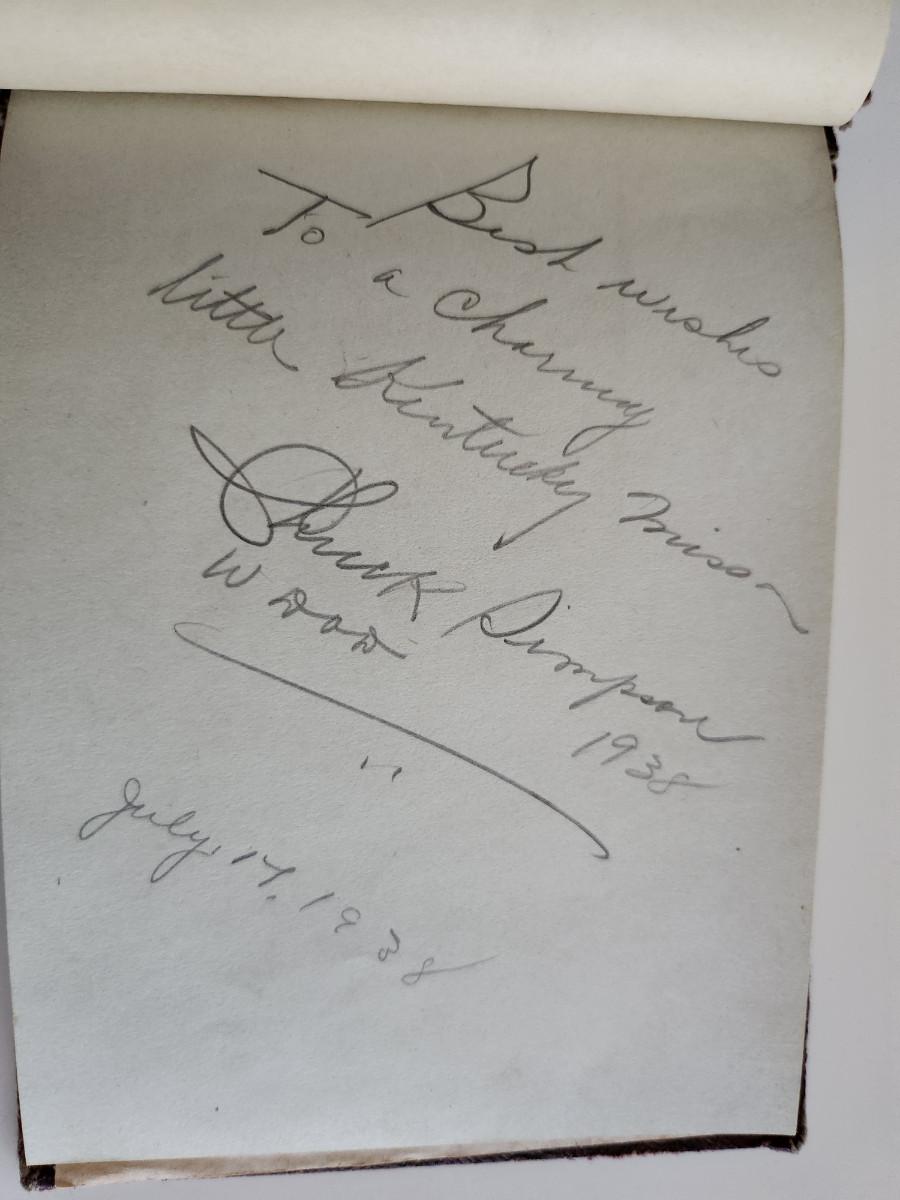 Best wishes
To a Charming
little Kentucky Miss
Chuck Simpson
W DOD 1938
July, 17, 1938